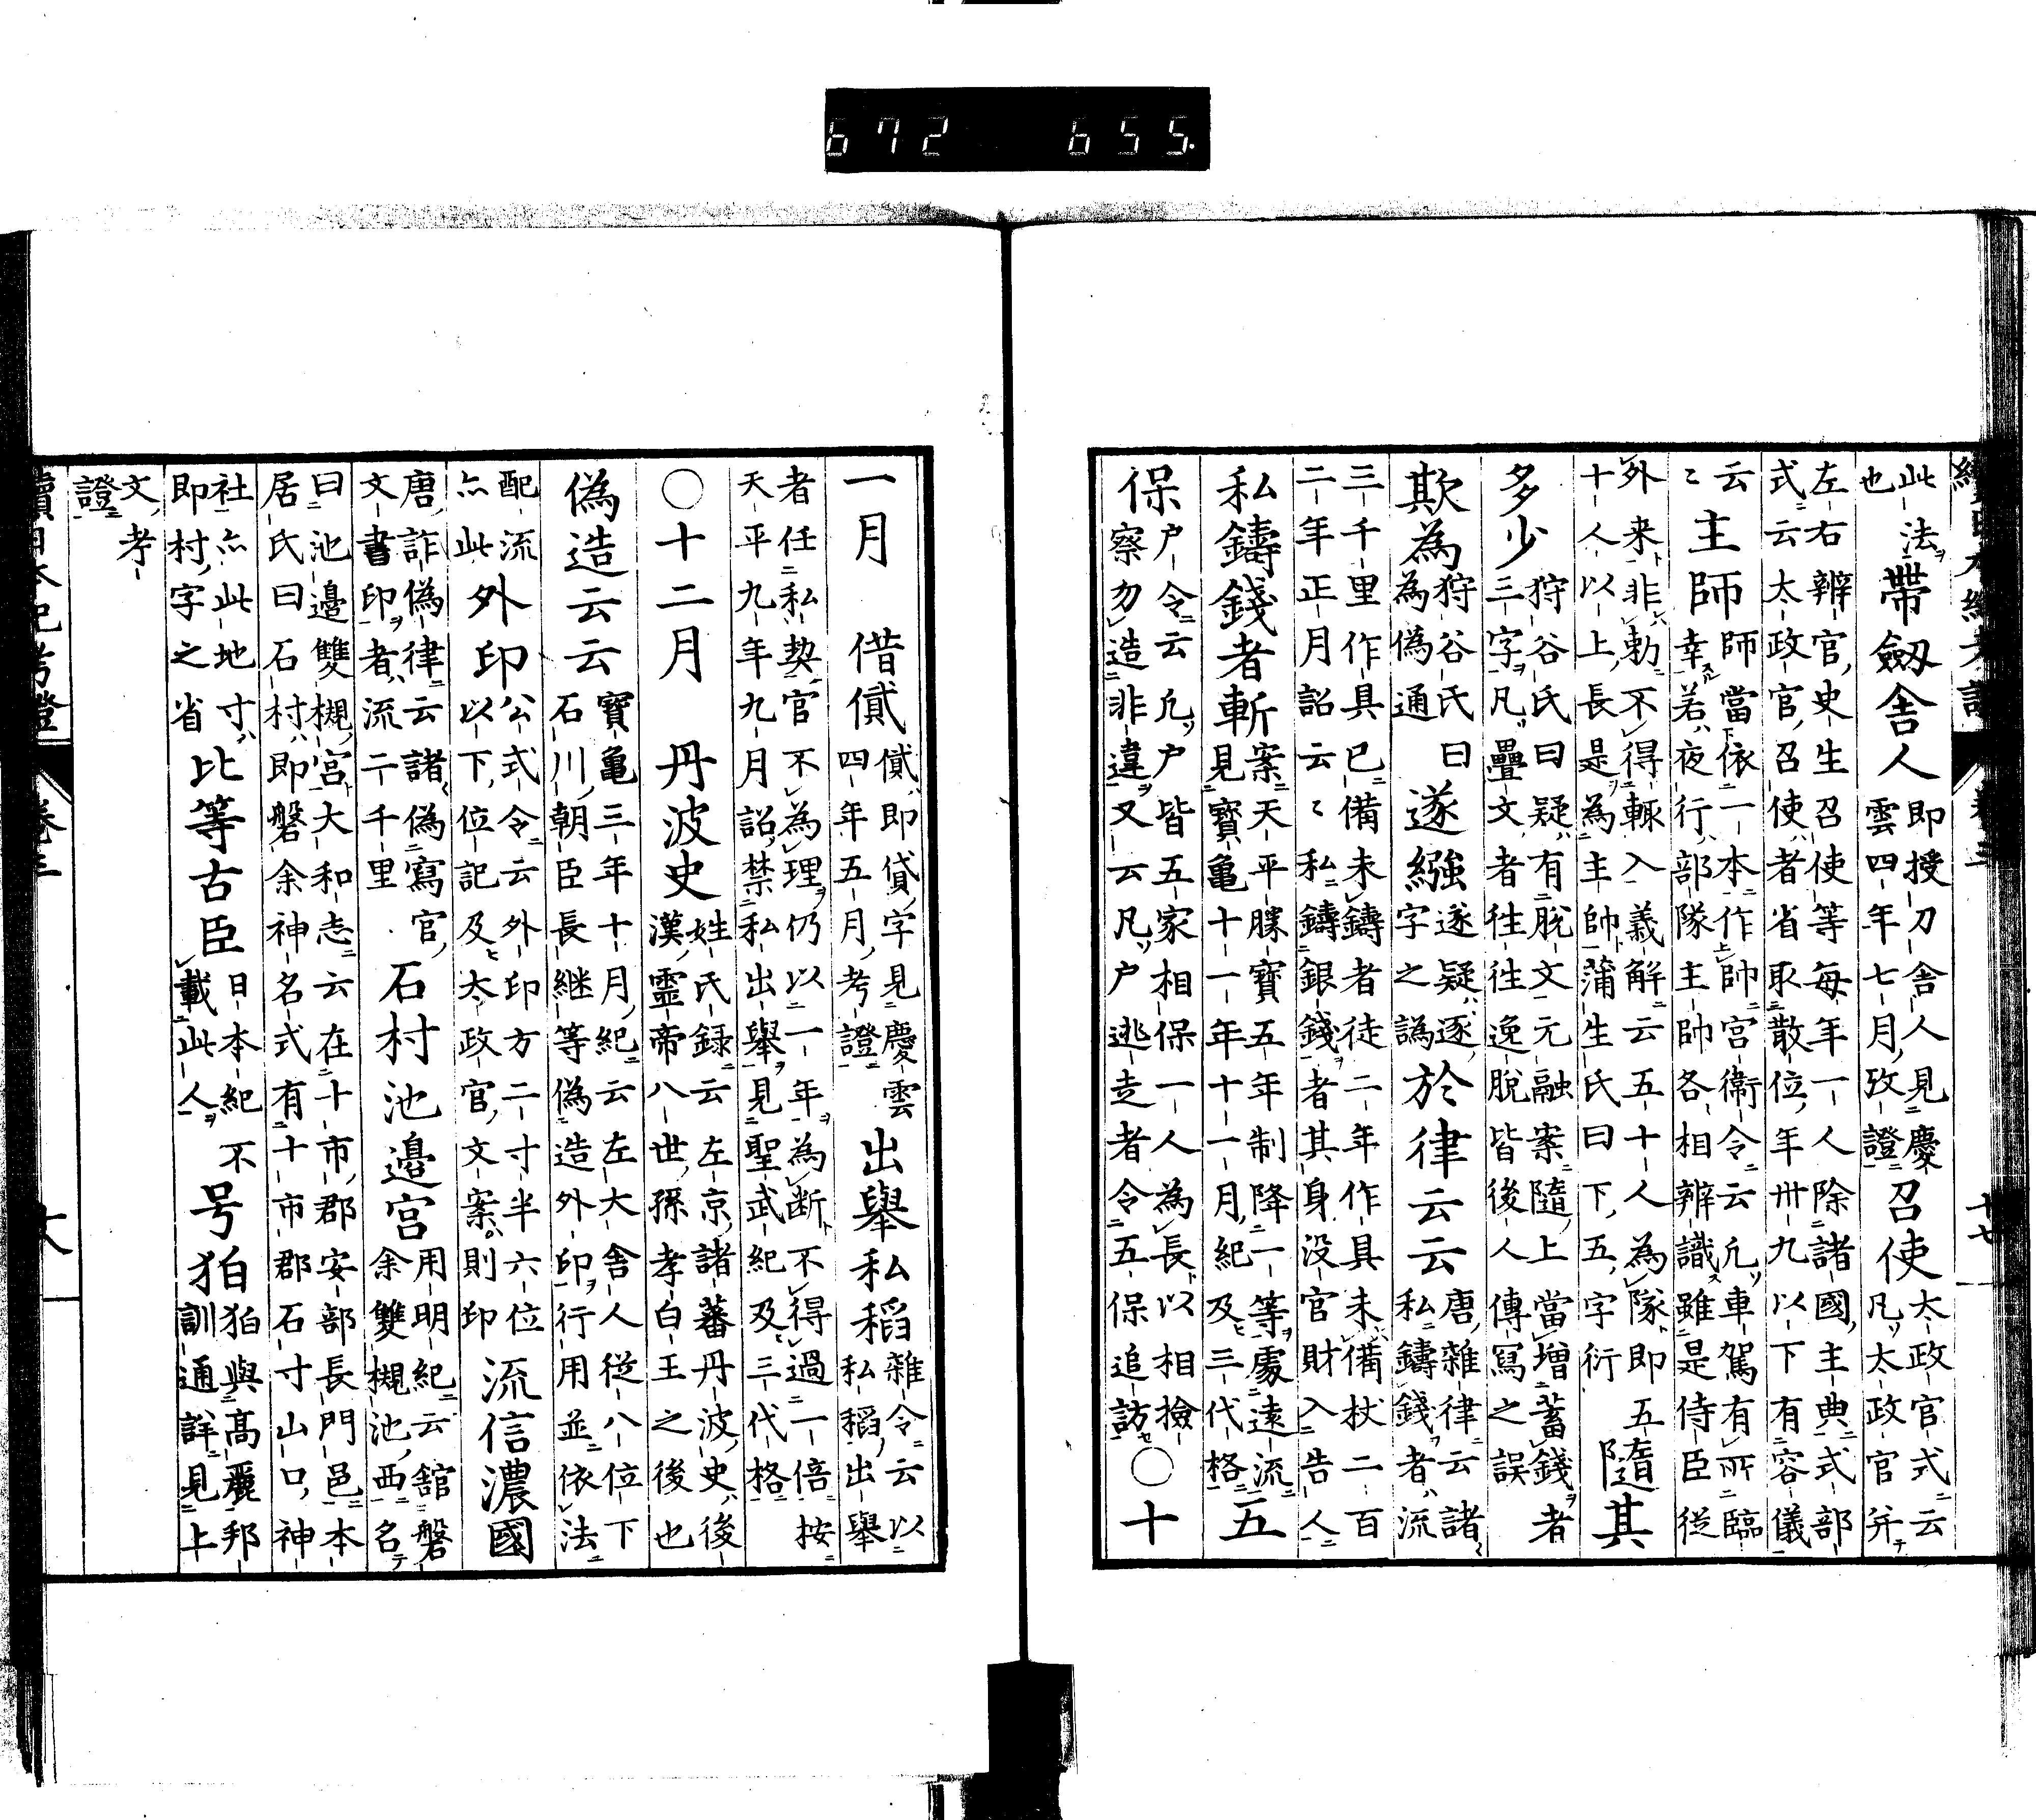 此法也帶劔舎人即授刀舎人見慶雲四年七月攷證召使太政官式云凡太政官并
左右辨官史生召使等毎年一人除諸國主典式部式云太政官召使者省取散位年卅九以下有容儀
云〻主師師當依一本作帥宮衛令云凡車駕有所臨幸若夜行部隊主帥各相辨識雖是侍臣従
外来非勅不得輙入義解云五十人為隊即五十人以上長是為主帥蒲生氏曰下五字衍隨其
多少狩谷氏曰疑有脱文元融案隨上當増蓄錢者三字凡疊文者往往逸脱皆後人傳寫之誤
欺為狩谷氏曰為偽通遂繦遂疑逐字之譌於律云云唐雜律云諸私鑄錢者流
三千里作具已備未鑄者徒二年作具未備杖二百二年正月詔云〻私鑄銀錢者其身没官財入告人
私鑄錢者斬案天平勝寳五年制降一等處遠流見寳亀十一年十一月紀及三代格五
保戸令云凡戸皆五家相保一人為長以相撿察勿造非違又云凡戸逃走者令五保追訪○十
一月借貣貣即貸字見慶雲四年五月考證出舉私稻雜令云以私稻出舉
者任私契官不為理仍以一年為断不得過一倍按天平九年九月詔禁私出舉見聖武紀及三代格
○十二月丹波史姓氏録云左京諸蕃丹波史後漢霊帝八世孫孝白王之後也
偽造云云寳亀三年十月紀云左大舎人従八位下石川朝臣長継等偽造外印行用並依法
配流亦此外印公式令云外印方二寸半六位以下位記及太政官文案則印流信濃國
唐詐偽律云諸偽寫官文書印者流二千里石村池邊宮用明紀云舘磐余雙槻池西名
曰池邊雙槻宮大和志云在十市郡安部長門邑本居氏曰石村即磐余神名式有十市郡石寸山口神
社亦此地寸即村字之省比等古臣日本紀不載此人号狛狛與高麗邦訓通詳見上
文考證
續日本紀考證 卷三
672 655.